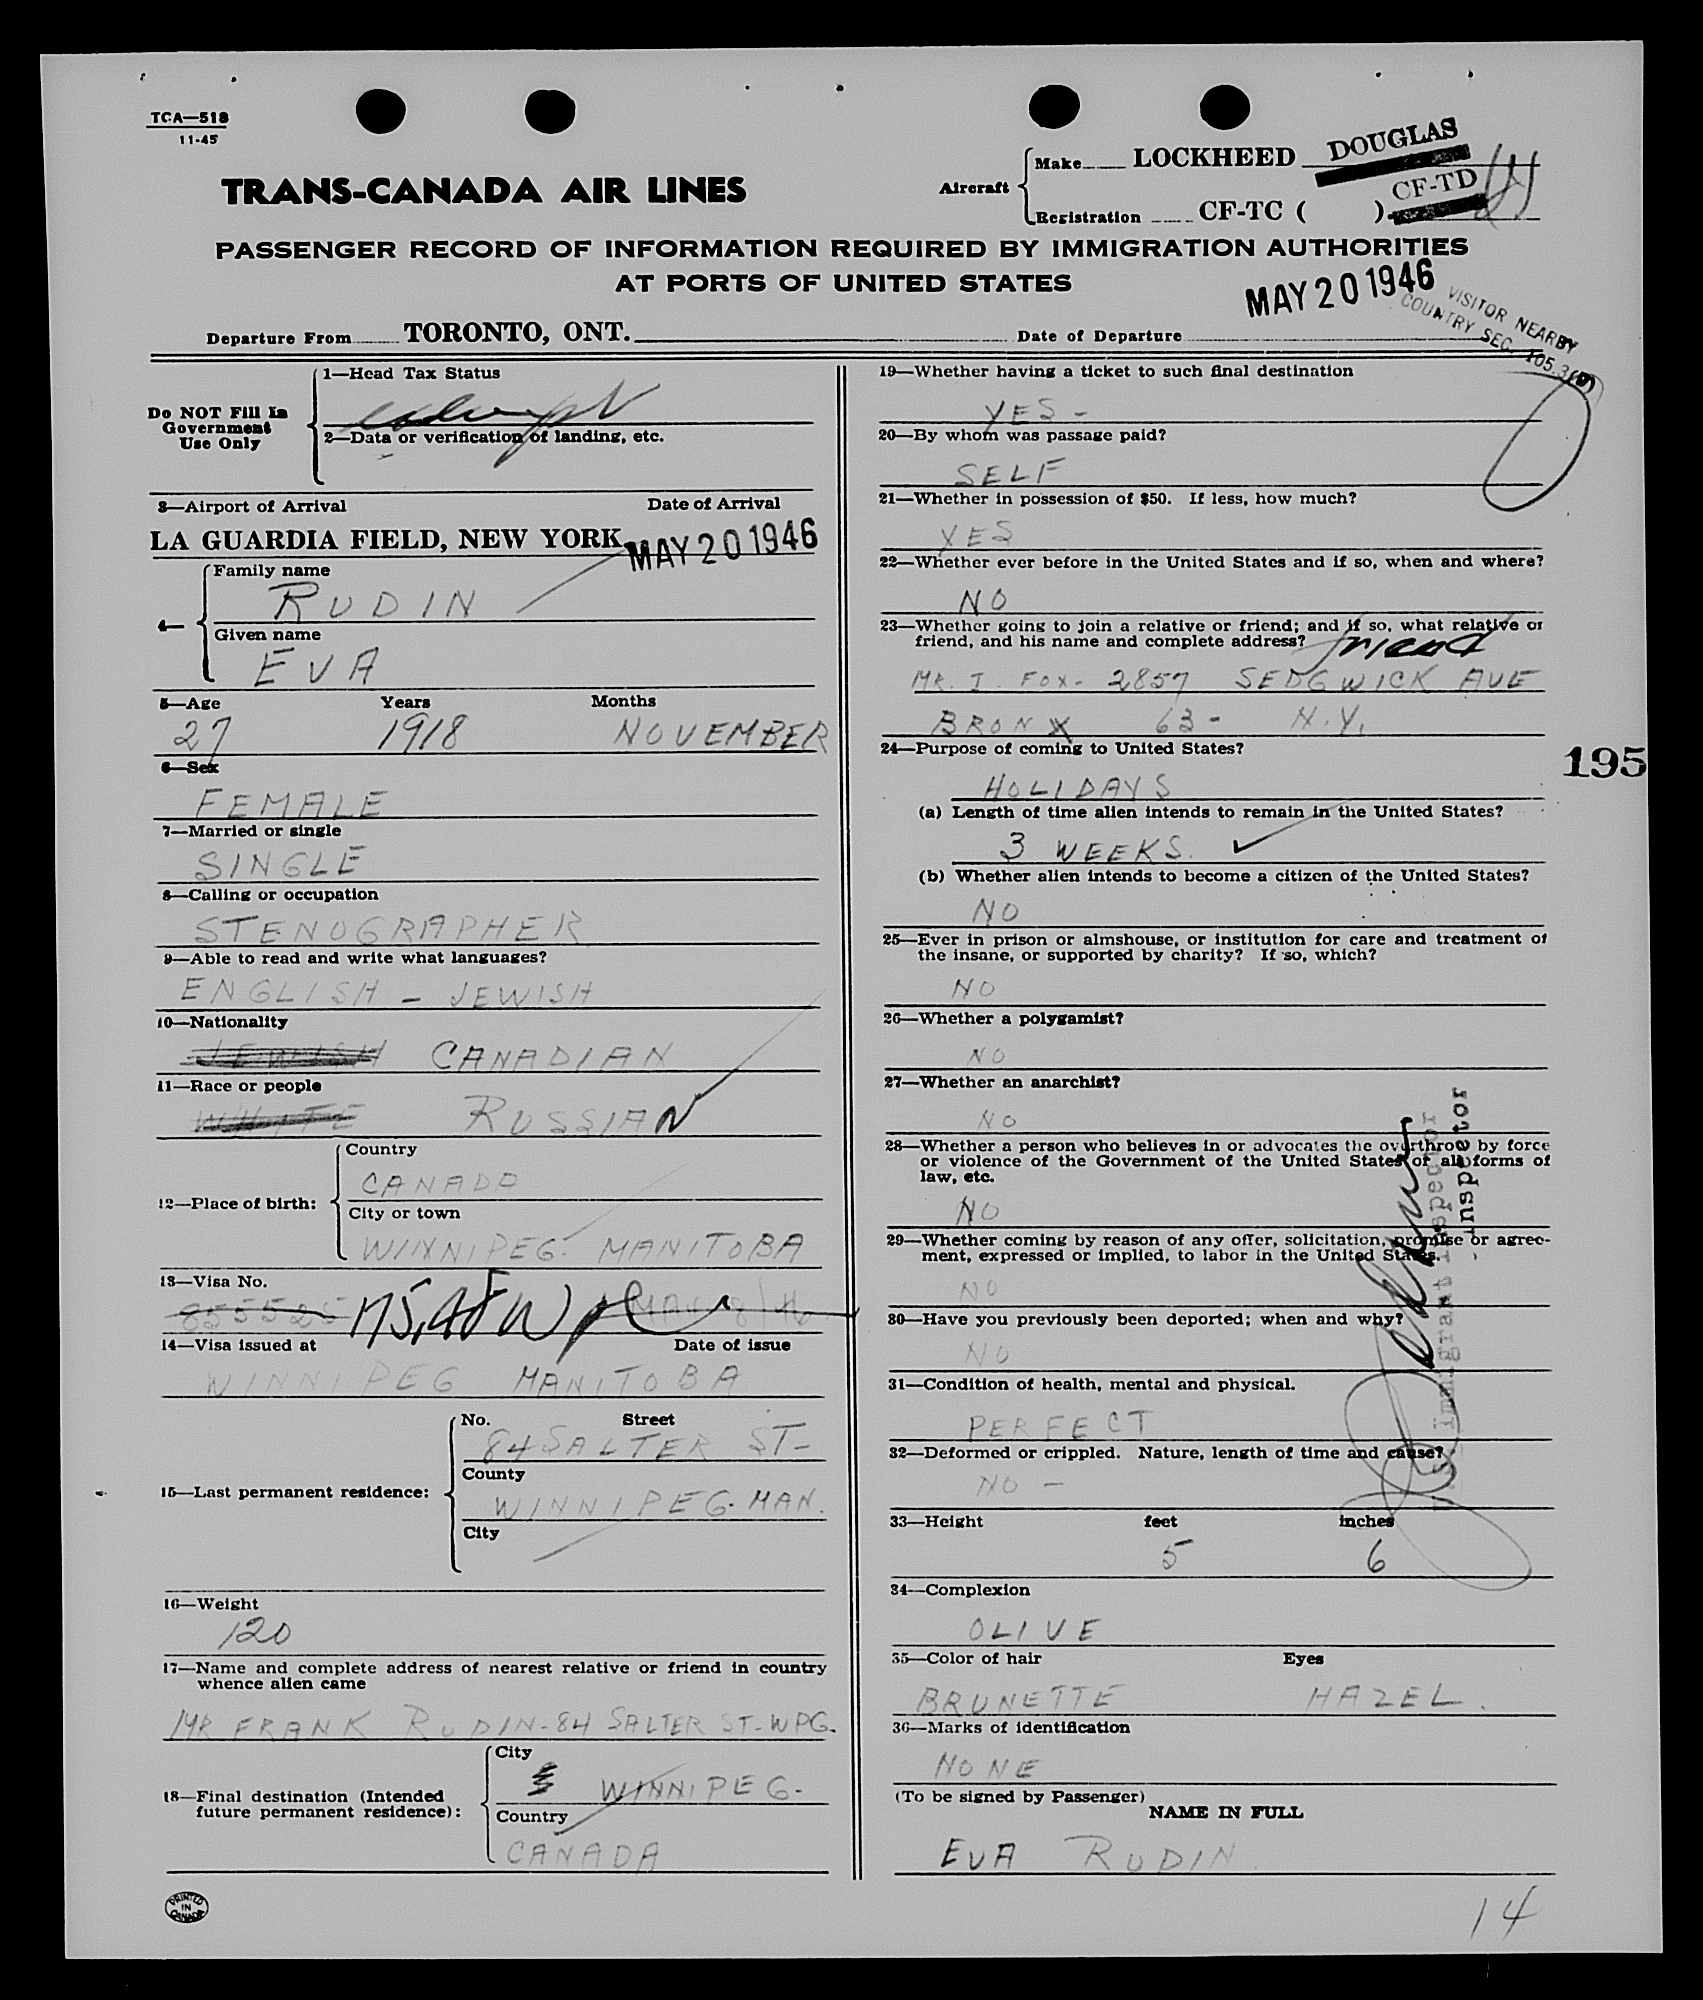 TCA—518
11-45
TRANS-CANADA AIR LINES
Aircraft
Make LOCKHEED DOUGLAS
Registration CF-TC ( ) CF-TD
PASSENGER RECORD OF INFORMATION REQUIRED BY IMMIGRATION AUTHORITIES
AT PORTS OF UNITED STATES
MAY 20 1946
VISITOR NEARBY
COUNTRY SEC. 105.3(D)
Departure From TORONTO, ONT. Date of Departure
Do NOT Fill In
Government
Use Only
1—Head Tax Status
2—Data or verification of landing, etc.
3—Airport of Arrival Date of Arrival
LA GUARDIA FIELD, NEW YORK MAY 20 1946
4—
Family name
RUDIN
Given name
EVA
5—Age Years Months
27 1918 NOVEMBER
6—Sex
FEMALE
7—Married or single
SINGLE
8—Calling or occupation
STENOGRAPHER
9—Able to read and write what languages?
ENGLISH - JEWISH
10—Nationality
JEWISH CANADIAN
11—Race or people
WHITE RUSSIAN
12—Place of birth:
Country
CANADA
City or town
WINNIPEG. MANITOBA
13—Visa No.
14—Visa issued at Date of issue
WINNIPEG MANITOBA
15—Last permanent residence:
No. Street
84 SALTER ST-
County
WINNIPEG. MAN.
City
16—Weight
120
17—Name and complete address of nearest relative or friend in country
whence alien came
MR FRANK RUDIN - 84 SALTER ST-WPG.
18—Final destination (Intended
future permanent residence):
City
WINNIPEG-
Country
CANADA
PRINTED
IN
CANADA
19—Whether having a ticket to such final destination
YES -
20—By whom was passage paid?
SELF
21—Whether in possession of $50. If less, how much?
YES
22—Whether ever before in the United States and if so, when and where?
NO
23—Whether going to join a relative or friend; and if so, what relative or
friend, and his name and complete address? friend
MR. I. FOX- 2857 SEDGWICK AVE
BRONX 63- N.Y.
24—Purpose of coming to United States?
HOLIDAYS
195
(a) Length of time alien intends to remain in the United States?
3 WEEKS.
(b) Whether alien intends to become a citizen of the United States?
NO
25—Ever in prison or almshouse, or institution for care and treatment of
the insane, or supported by charity? If so, which?
NO
26—Whether a polygamist?
NO
27—Whether an anarchist?
NO
28—Whether a person who believes in or advocates the overthrow by force
or violence of the Government of the United States or all forms of
law, etc.
NO
29—Whether coming by reason of any offer, solicitation, promise or agree-
ment, expressed or implied, to labor in the United States.
NO
30—Have you previously been deported; when and why?
NO
31—Condition of health, mental and physical.
PERFECT
32—Deformed or crippled. Nature, length of time and cause?
NO -
U.S. Immigrant Inspector
Inspector
33—Height feet inches
5 6
34—Complexion
OLIVE
35—Color of hair Eyes
BRUNETTE HAZEL.
36—Marks of identification
NONE
(To be signed by Passenger)
NAME IN FULL
EVA RUDIN
14